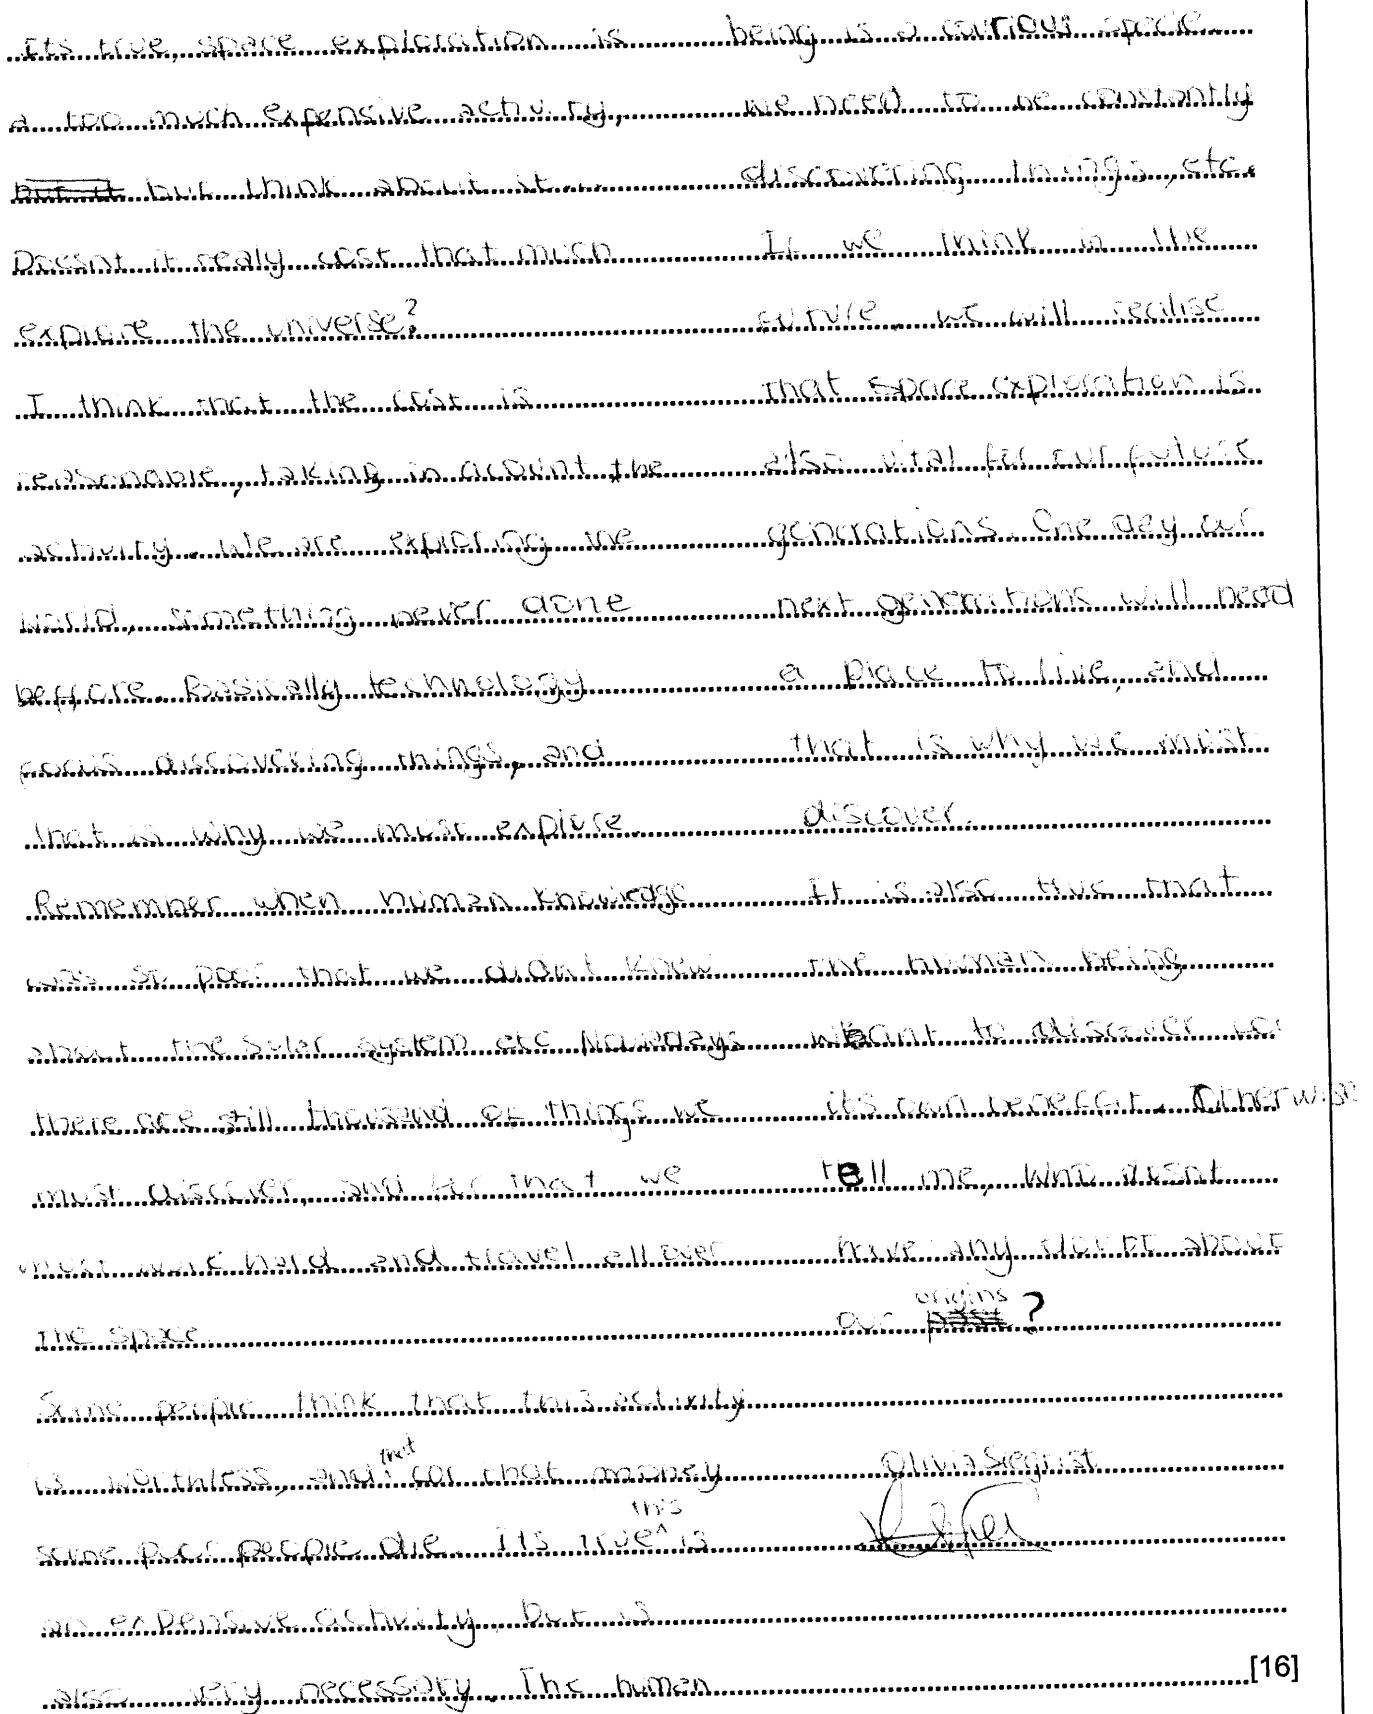 Its true, space exploration is
a too much expensive activity,
but it but think about it...
Doesnt it realy cost that much
explore the universe?
I think that the cost is
reasonable, taking in acount the
activity. We are exploring the
world, something never done
beffore. Basically technology
focus discovering things, and
that is why we must explore.
Remember when human knowledge
was so poor that we didnt know
about the solar system etc Nowadays
there are still thousand of things we
must discover, and for that we
must work hard and travel all over
the space.
Some people think that this activity
is worthless, and that for that money
some poor people die. Its true this is
an expensive activity, but is
also very necessary. The human
being is a curious specie
we need to be constantly
discovering things, etc.
If we think in the
future, we will realise
that space exploration is
also vital for our future
generations. One day our
next generations will need
a place to live, and
that is why we must
discover.
It is also true that
the human being
want to discover for
its own beneffit. Otherwise
tell me, who dosnt
have any doubt about
our past origins?
Olivia Siegrist
[16]